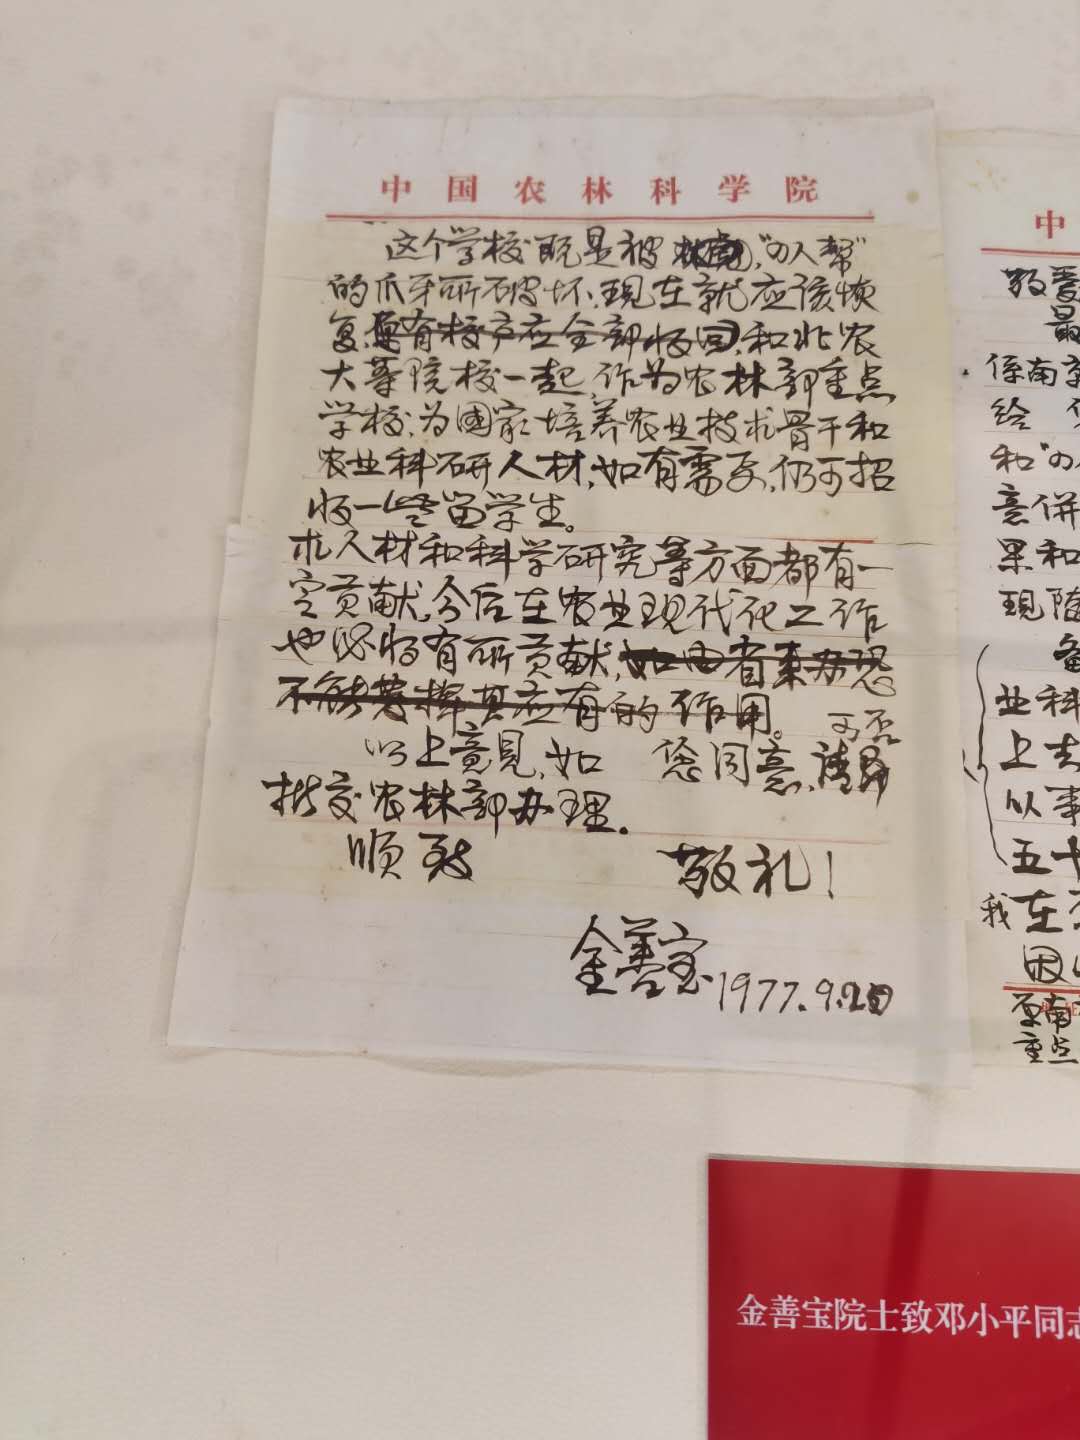 中国农林科学院
这个学校既是被"四人帮"
的爪牙所破坏，现在就应该恢
复，原有校产应全部收回，和北农
大等院校一起，作为农林部重点
学校，为国家培养农业技术骨干和
农业科研人材，如有需要，仍可招
收一些留学生。
术人材和科学研究等方面都有一
定贡献，今后在农业现代化工作
也必将有所贡献，如由省来办恐
不能发挥其应有的作用。可否
以上意见，如 您同意，请
批交农林部办理。
顺致 敬礼！
金善宝 1977.9.20
中
敬爱
最
係南京
给
和"四
意併
果和
现随
备
业科
上去
从事
五十
我在
因
原南
重点
金善宝院士致邓小平同志